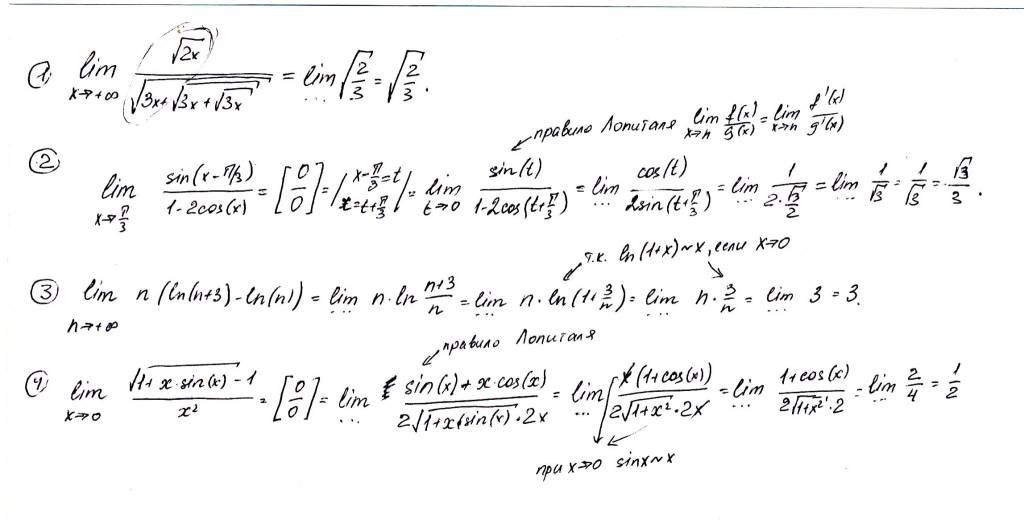 ① lim x→+∞ √2x / √(3x+√(3x+√3x)) = lim ... √(2/3) = √(2/3).
правило Лопиталя lim x→n f(x)/g(x) = lim x→n f'(x)/g'(x)
② lim x→π/3 sin(x-π/3) / 1-2cos(x) = [0/0] = | x-π/3=t x=t+π/3 | = lim t→0 sin(t) / 1-2cos(t+π/3) = lim ... cos(t) / 2sin(t+π/3) = lim ... 1 / 2·√3/2 = lim ... 1/√3 = 1/√3 = √3/3.
т.к. ln(1+x)~x, если x→0
③ lim n→+∞ n(ln(n+3)-ln(n)) = lim ... n·ln n+3/n = lim ... n·ln(1+3/n) = lim ... n·3/n = lim ... 3 = 3.
правило Лопиталя
④ lim x→0 √(1+x·sin(x))-1 / x² = [0/0] = lim ... sin(x)+x·cos(x) / 2√(1+x·sin(x))·2x = lim ... x(1+cos(x)) / 2√(1+x²)·2x = lim ... 1+cos(x) / 2√(1+x²)·2 = lim ... 2/4 = 1/2
при x→0 sinx~x